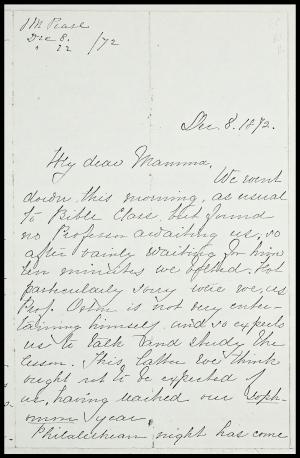 J M Pease
Dec 8.
" 22 /72
Dec. 8. 1872.
My dear Mamma,
We went
down this morning, as usual
to Bible Class, but found
no Professor awaiting us, so
after vainly waiting for him
ten minutes we opened. Not
particularly sorry were we, as
Prof. Orton is not very enter-
taining himself and so expects
us to talk and study the
lesson. This latter we think
ought not to be expected of
us, having reached our Soph-
omore year.
Philalethean night has come